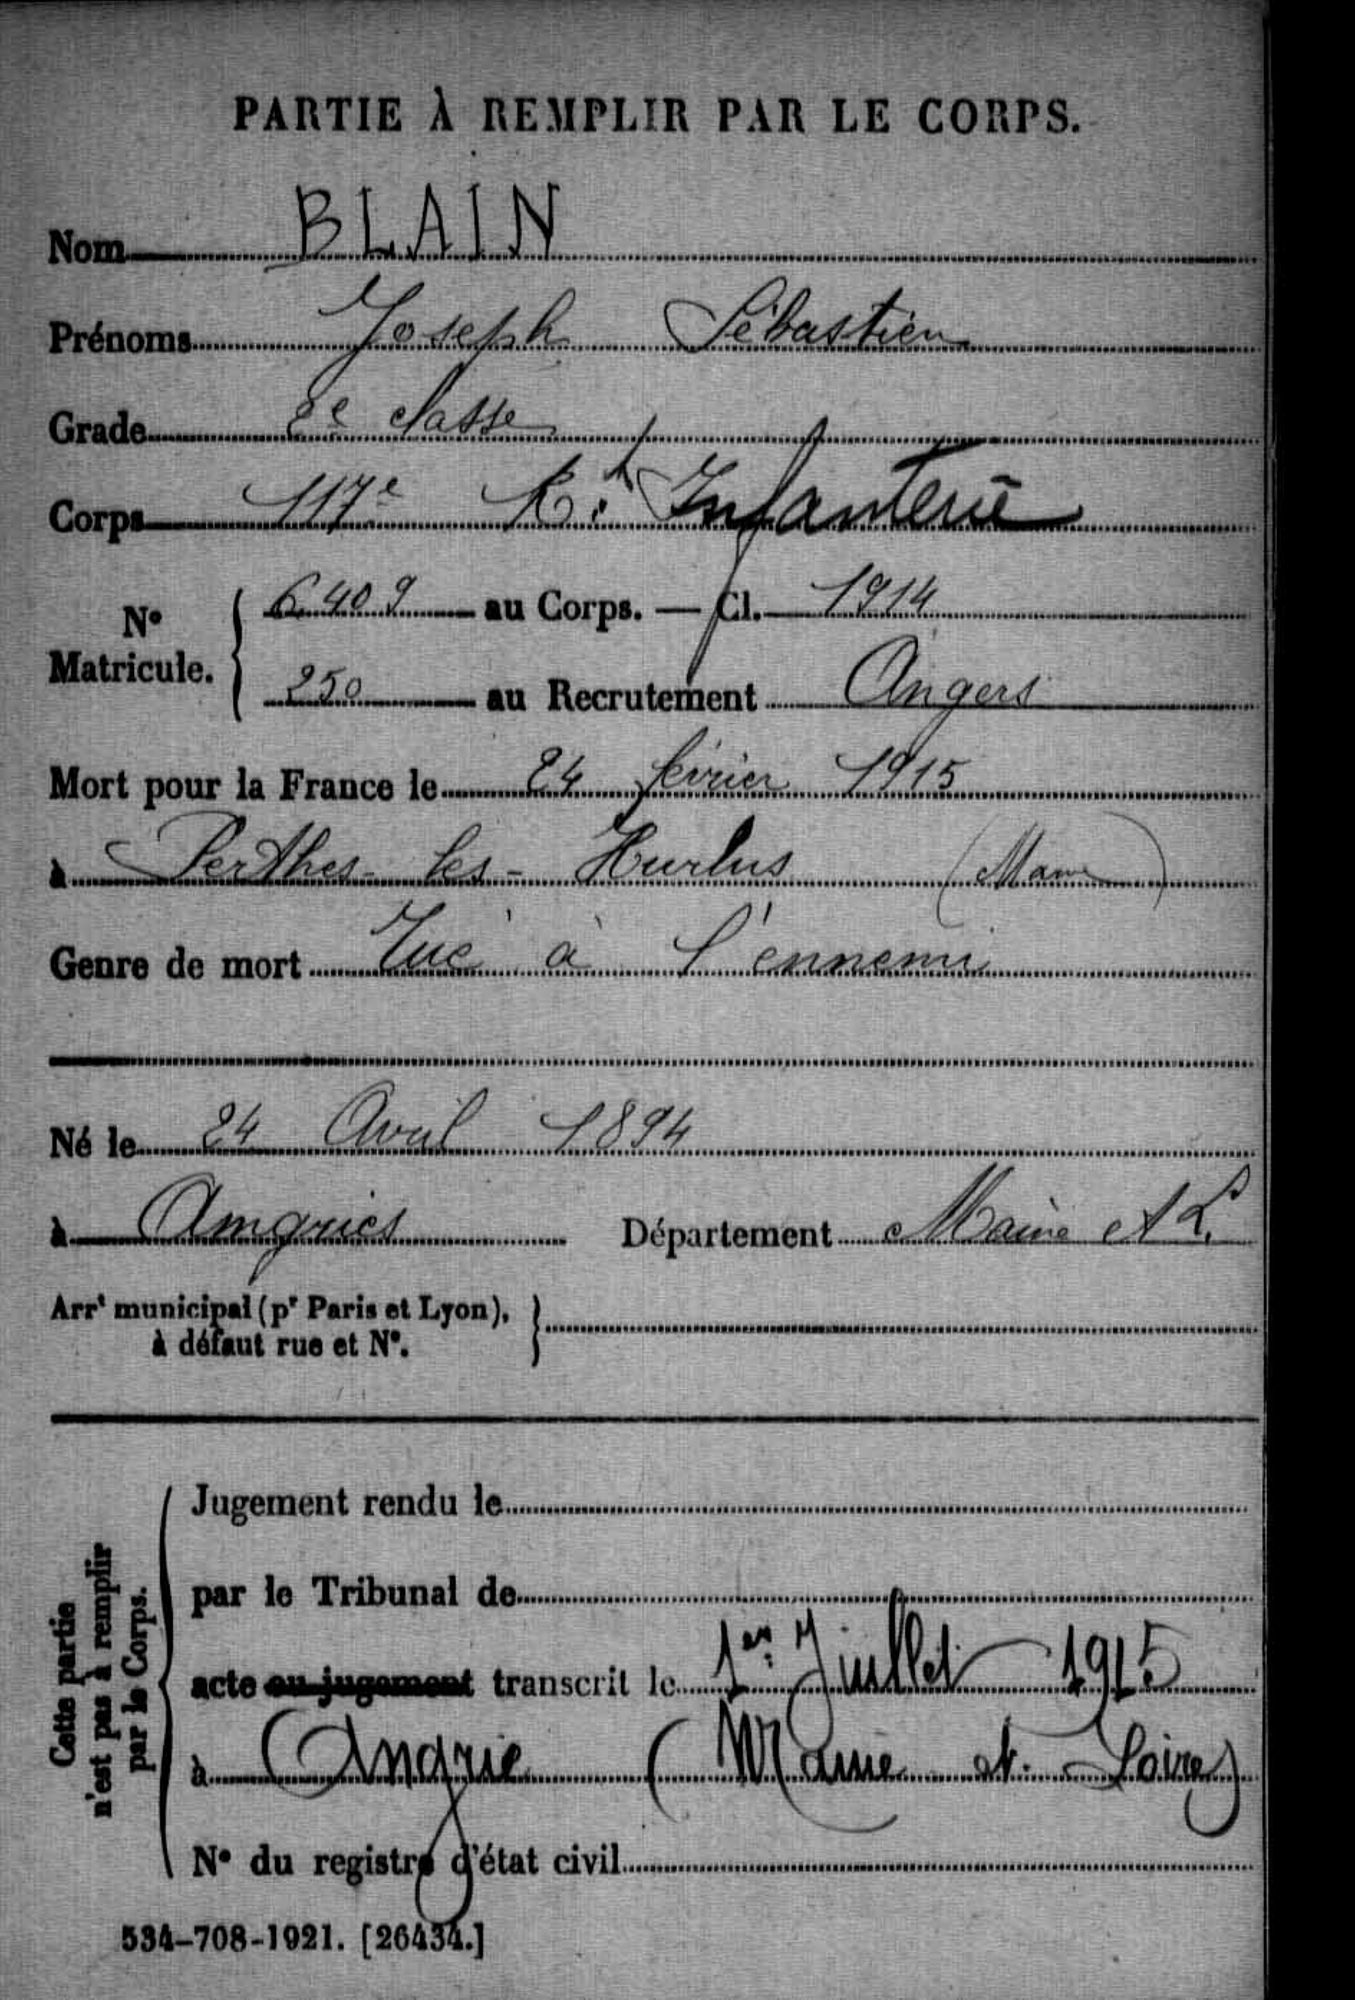 PARTIE À REMPLIR PAR LE CORPS.
Nom BLAIN
Prénoms Joseph Sébastien
Grade 2e classe
Corps 117e Rt Infanterie
No Matricule. 6409 au Corps. — Cl. 1914
250 au Recrutement Angers
Mort pour la France le 24 février 1915
à Perthes-les-Hurlus (Marne)
Genre de mort Tué à l'ennemi
Né le 24 Avril 1894
à Angries Département Maine et L.
Arrt municipal (pr Paris et Lyon),
à défaut rue et No.
Cette partie
n'est pas à remplir
par le Corps.
Jugement rendu le
par le Tribunal de
acte ou jugement transcrit le 1er Juillet 1915
à Angrie (Maine et Loire)
No du registre d'état civil
534-708-1921. [26434.]